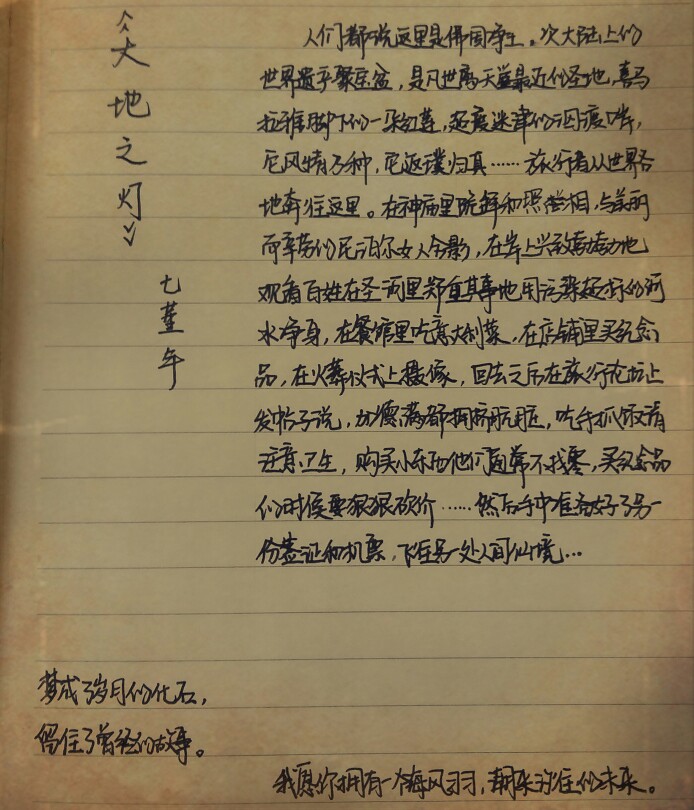 《大地之灯》
七堇年
人们都说这里是佛国净土。次大陆上的
世界遗产聚宝盆，是凡世离天堂最近的圣地，喜马
拉雅脚下的一朵红莲，超度迷津的河渡口，
它风情万种，它返璞归真……旅行者从世界各
地奔往这里。在神庙里晓鲜和照像相，与美丽
而辛劳的尼泊尔女人合影，在岸上兴致勃勃地
观看百姓在圣河里郑重其事地用污染超标的河
水净身，在餐馆里吃意大利菜，在店铺里买纪念
品，在火葬仪式上摄像，回去之后在旅行论坛上
发帖子说，加德满都拥挤肮脏，吃手抓饭请
注意卫生，购买小东西他们通常不找零，买纪念品
的时候要狠狠砍价……然后手中准备好了另一
份签证和机票，飞往另一处人间仙境…
梦成了岁月的化石，
留住了曾经的故事。
我愿你拥有一幅风羽，朝来我往的未来。